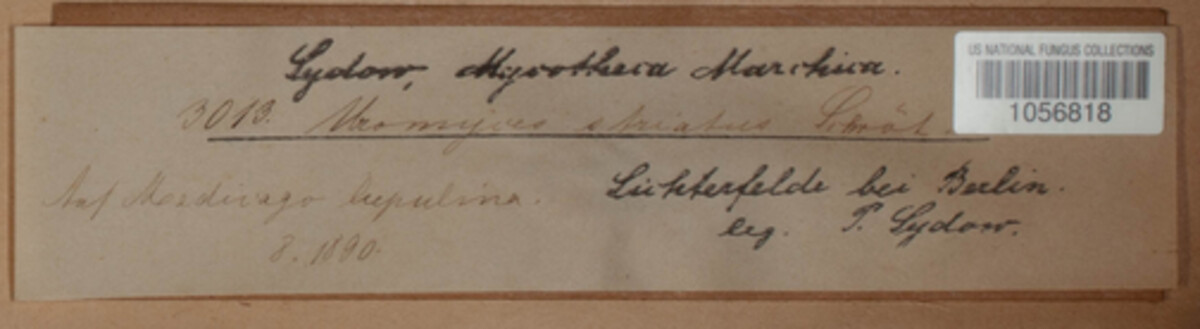 Sydow, Mycotheca Marchica.
US NATIONAL FUNGUS COLLECTIONS
1056818
3013. Uromyces striatus Schröt.
Auf Medicago lupulina.
8. 1890.
Lichterfelde bei Berlin.
leg. P. Sydow.